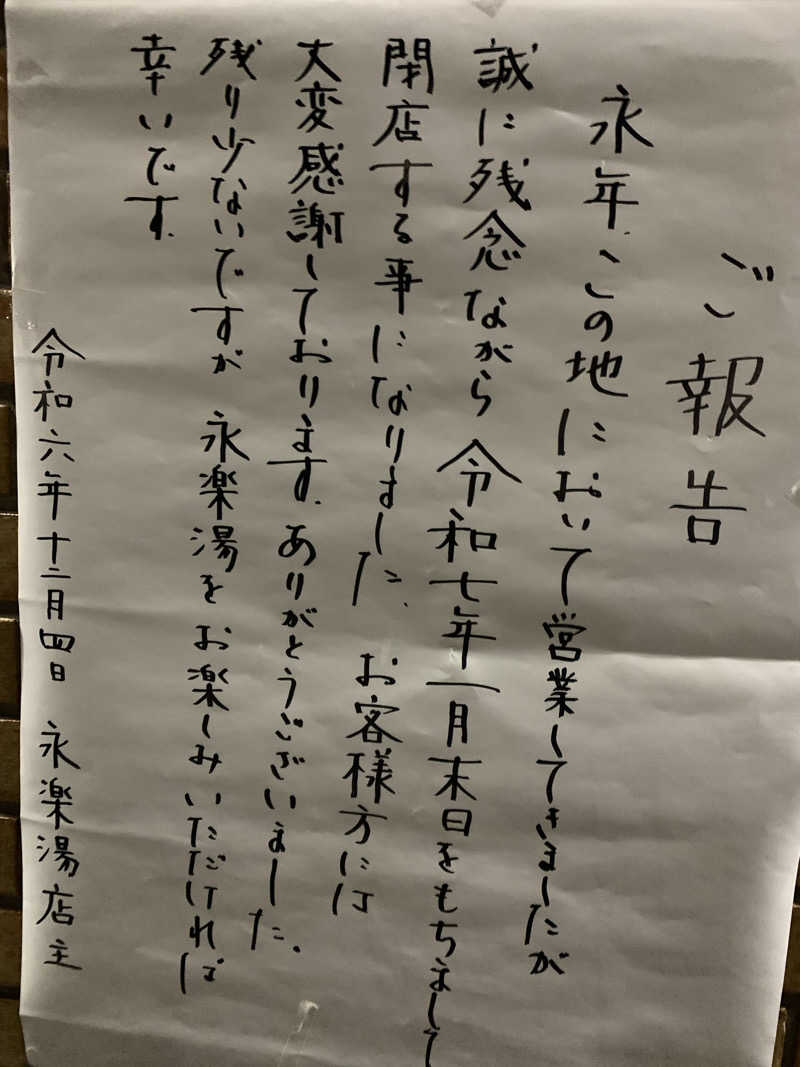 ご報告
永年、この地において営業してきましたが
誠に残念ながら 令和七年一月末日をもちまして
閉店する事になりました、お客様方には
大変感謝しております、ありがとうございました。
残り少ないですが 永楽湯をお楽しみいただければ
幸いです、
令和六年十二月四日 永楽湯店主